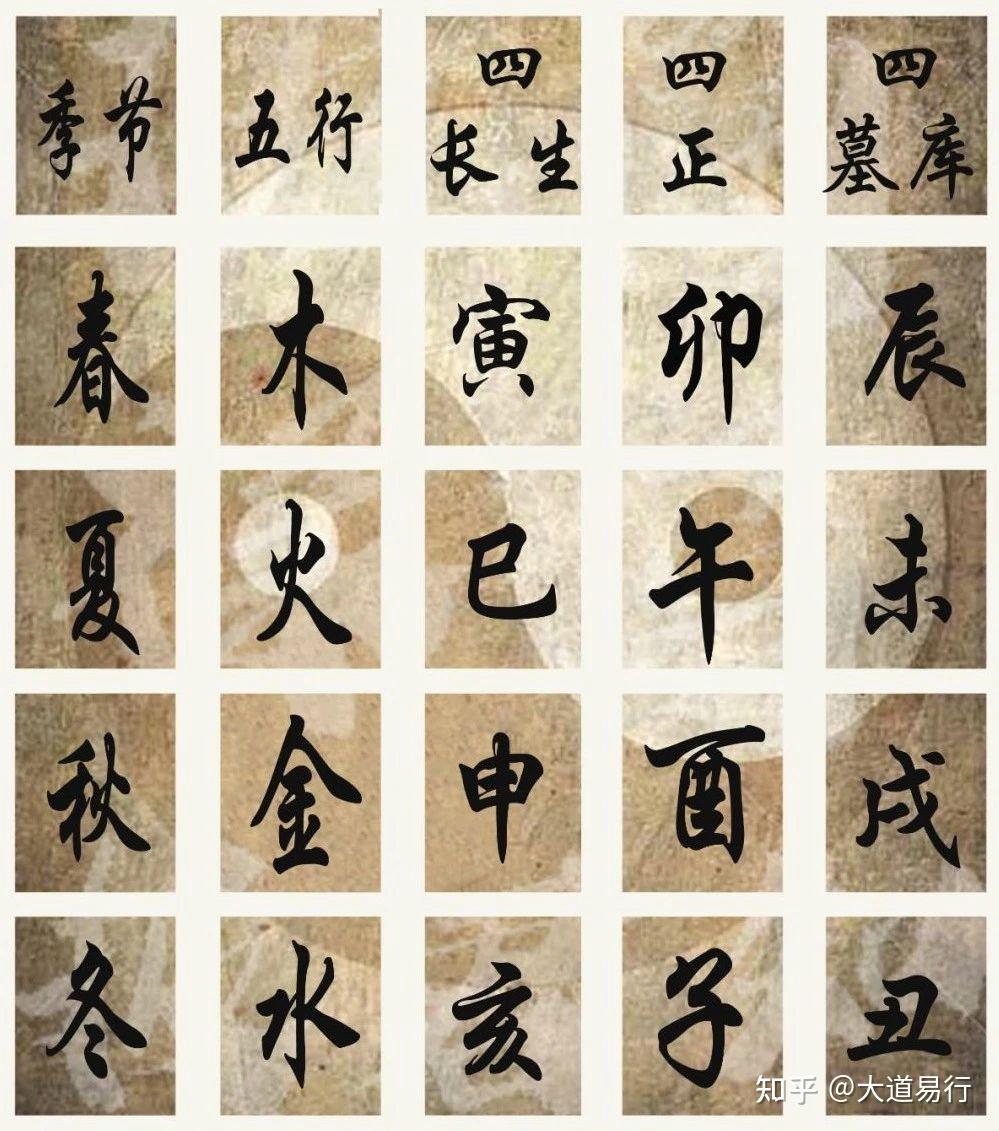 季节 五行 四长生 四正 四墓库
春 木 寅 卯 辰
夏 火 巳 午 未
秋 金 申 酉 戌
冬 水 亥 子 丑
知乎 @大道易行